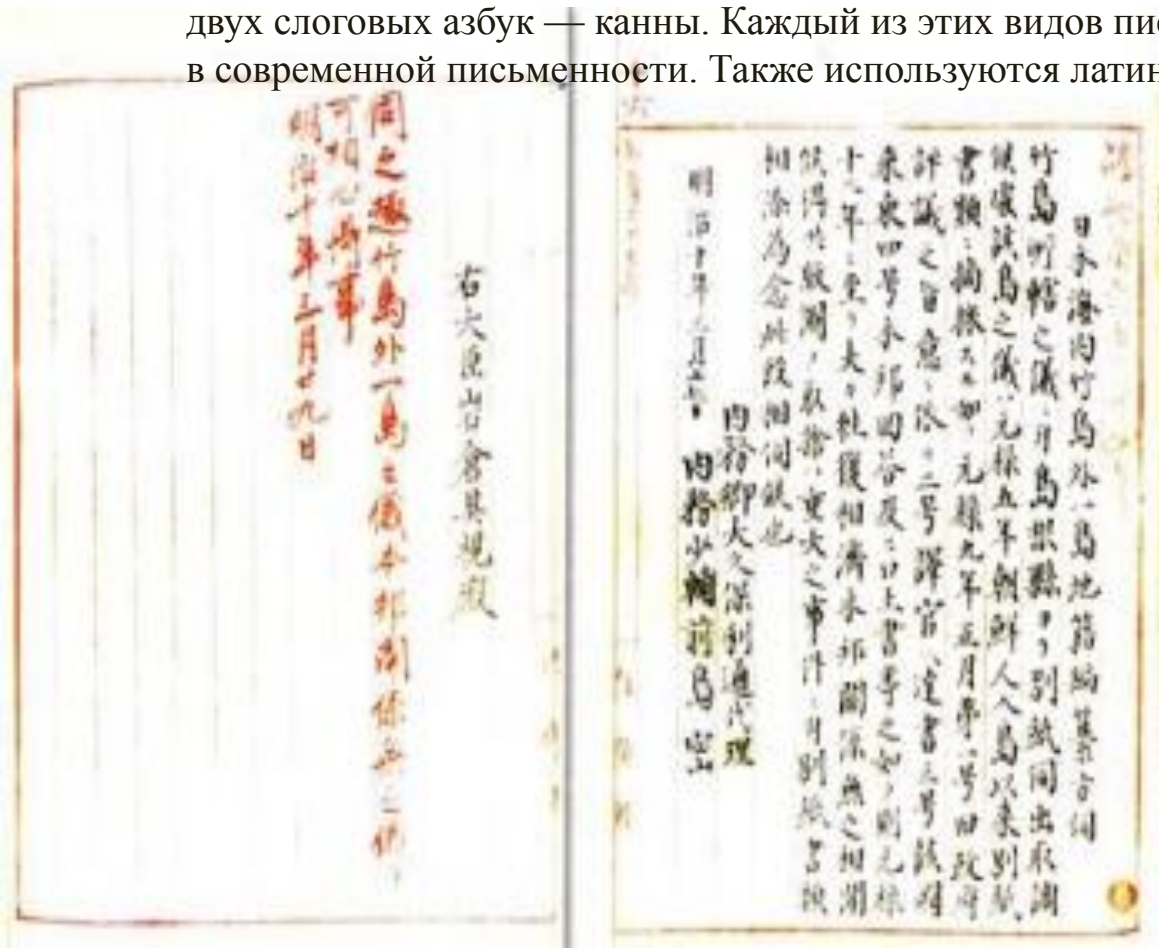 двух слоговых азбук — канны. Каждый из этих видов пис
в современной письменности. Также используются латин
日本海内竹島外一島地籍編纂方伺
竹島所轄之儀ニ付島根縣ヨリ別紙伺出取調
候處該島之儀ハ元禄五年朝鮮人入島以来別紙
書類ニ摘採スル如ク元禄九年正月第一号旧政府
評議之旨意ニ依リ二号譯官ヘ達書三号該国
来柬四号本邦回答及ヒ口上書等之如ク則元禄
十二年ニ至リ夫々往復相濟本邦關係無之相聞
候得共版圖ノ取捨ハ重大之事件ニ付別紙書類
相添為念此段相伺候也
内務卿大久保利通代理
明治十年三月十七日 内務少輔前島密
右大臣岩倉具視殿
伺之趣竹島外一島之儀本邦関係無之儀ト
可相心得事
明治十年三月廿九日